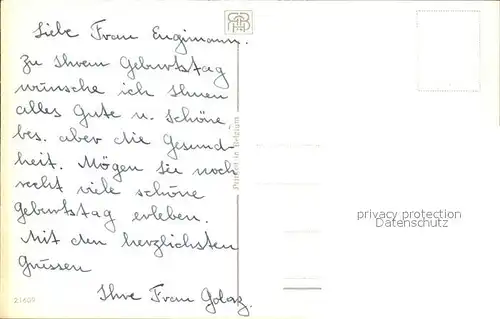 Liebe Frau Engimann.
Zu Ihrem Geburtstag
wünsche ich Ihnen
alles Gute u. Schöne,
bes. aber die Gesund-
heit. Mögen Sie noch
recht viele schöne
Geburtstag erleben.
Mit den herzlichsten
Grüssen
Ihre Frau Golaz.
Printed in Belgium
21609
privacy protection
Datenschutz